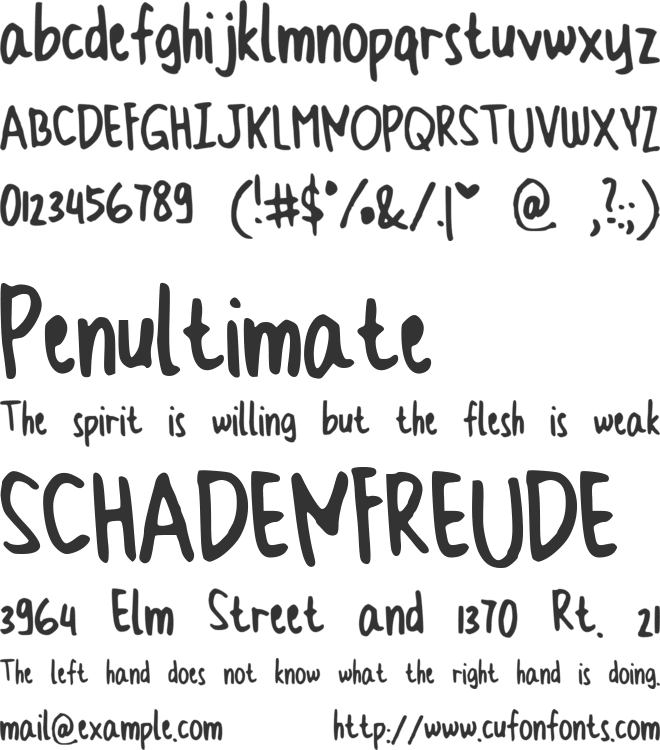 abcdefghijklmnopqrstuvwxyz
ABCDEFGHIJKLMNOPQRSTUVWXYZ
0123456789 (!#$%&/.|♥ @ ,?:;)
Penultimate
The spirit is willing but the flesh is weak
SCHADENFREUDE
3964 Elm Street and 1370 Rt. 21
The left hand does not know what the right hand is doing.
mail@example.com http://www.cufonfonts.com